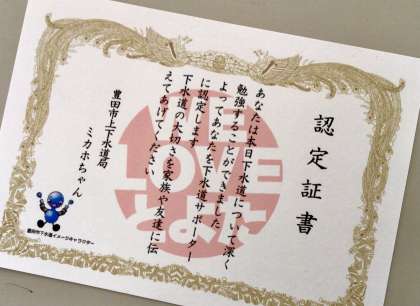 認定証書
あなたは本日下水道について深く
勉強することができました
よってあなたを下水道サポーター
に認定します
下水道の大切さを家族や友達に伝
えてあげてください
豊田市上下水道局
ミカホちゃん
WE
LOVE
とよた
豊田市下水道イメージキャラクター